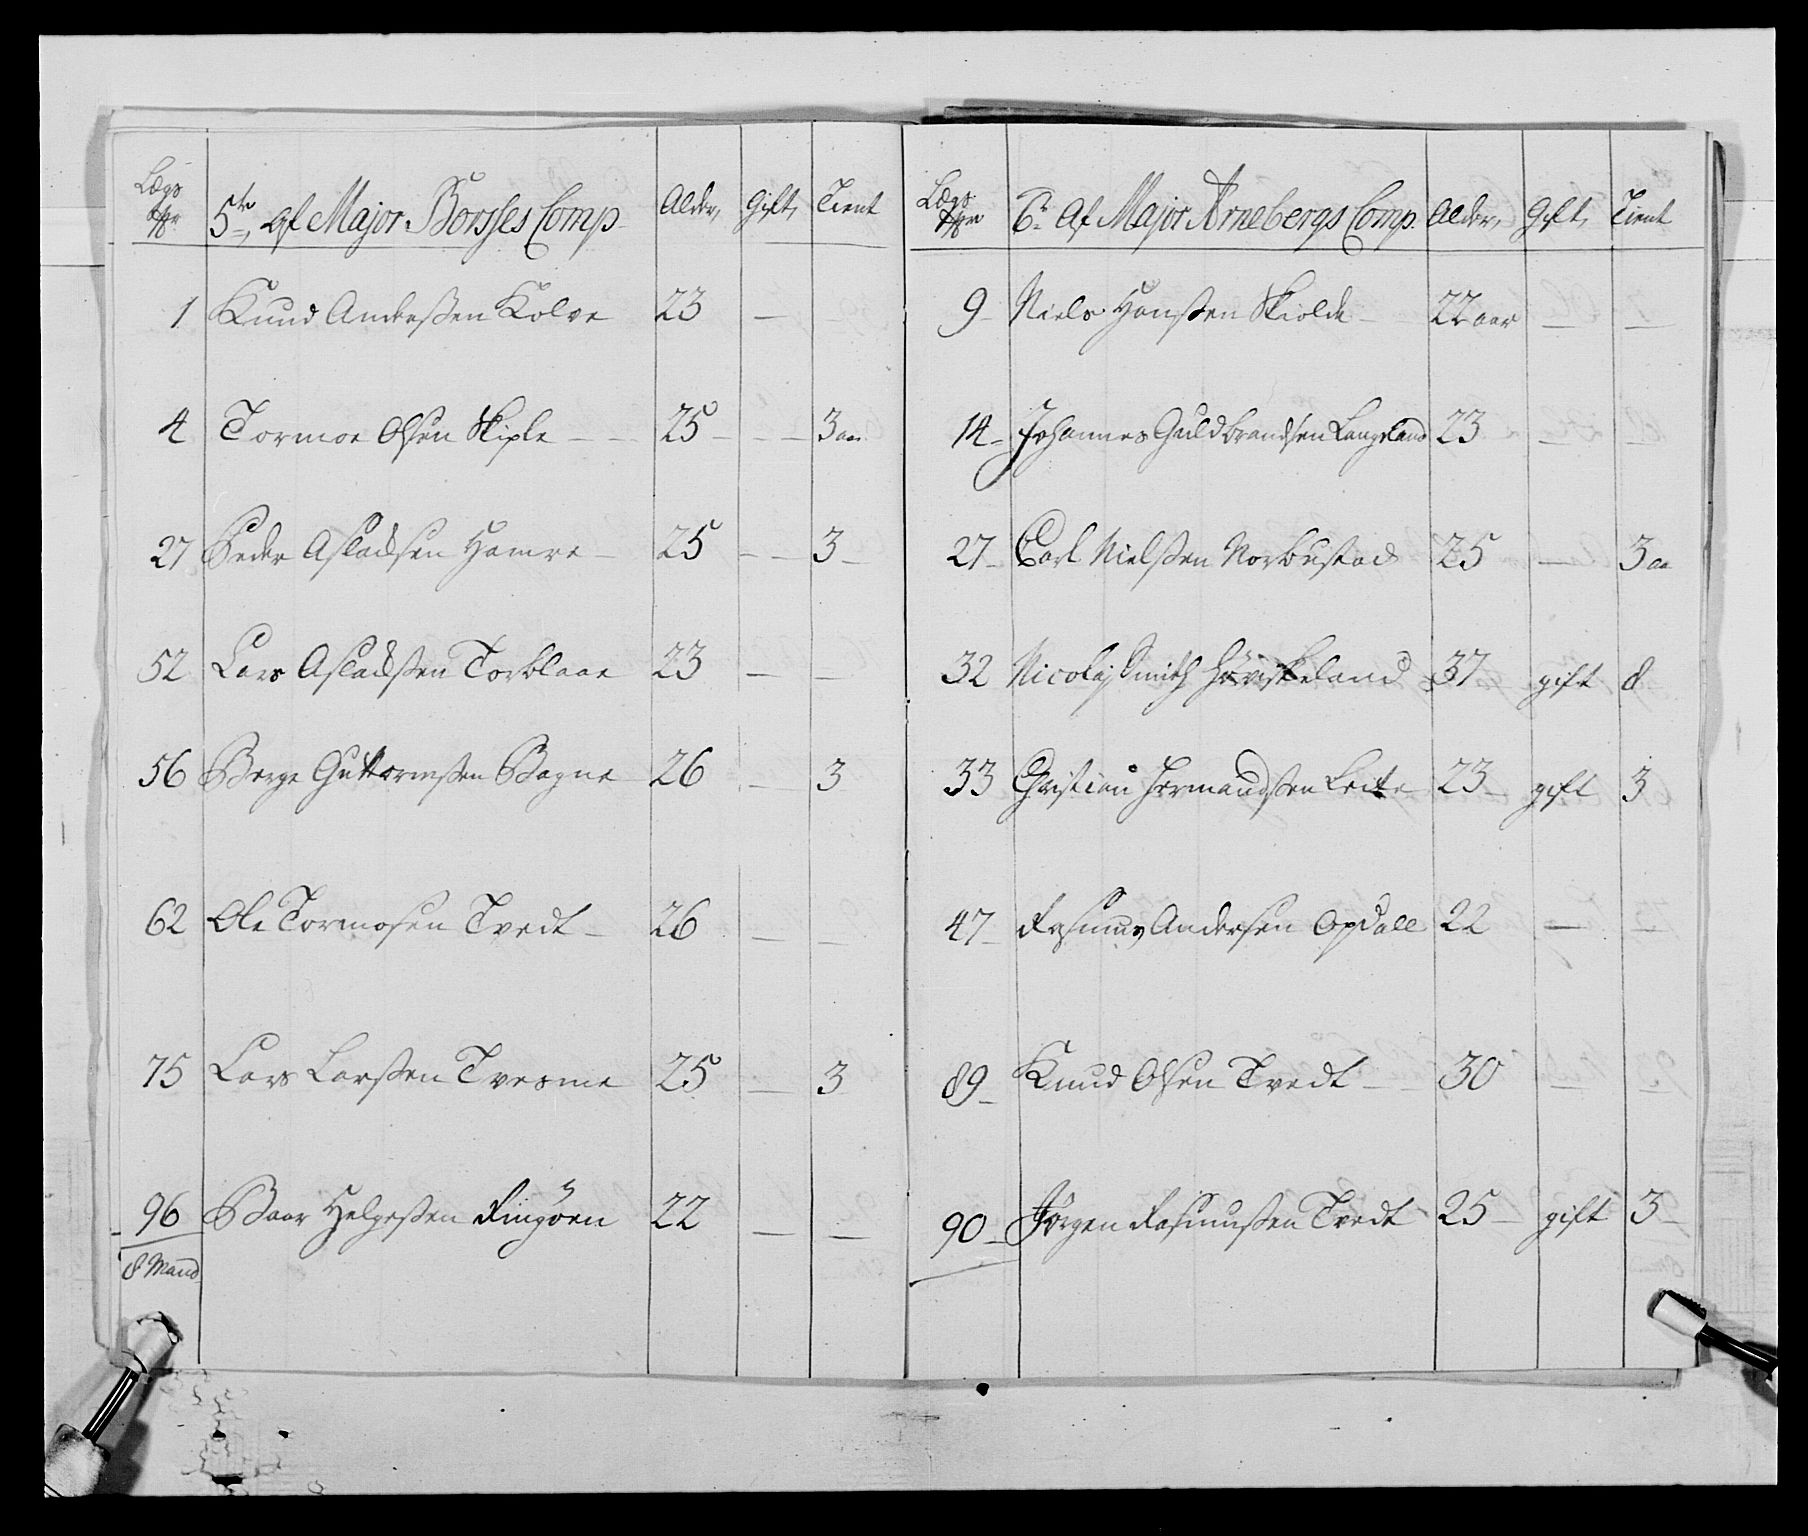 Lægs Nr 5te, af Major Borsses Comp Alder, Gift, Tient
1 Knud Andersen Kolve 23 —
4 Tormoe Olsen Skiple — 25 — — 3 aar
27 Peder Asladsen Hamre — 25 — — 3 —
52 Lars Asladsen Torblaae 23 — —
56 Børge Guttormsen Bagne 26 — 3
62 Ole Tormosen Tvedt — 26 — —
75 Lars Larsen Tvesme 25 — 3
96 Baar Helgesen Ringøen 22 — —
8 Mand
Lægs Nr 6te Af Major Arnebergs Comp. Alder, Gift, Tient
9 Niels Hansen Skiolde — 22 aar — —
14 Johannes Guldbrandsen Langeland 23 — —
27 Carl Nielsen Norbustad 25 — 3 aa
32 Nicolaj Smith Høviskeland 37 gift 8
33 Christian Hermandsen Leite 23 — gift 3
47 Rasmus Andersen Opdall 22 —
89 Knud Olsen Tvedt — 30 — —
90 Jörgen Rasmussen Tvedt 25 — gift 3 —